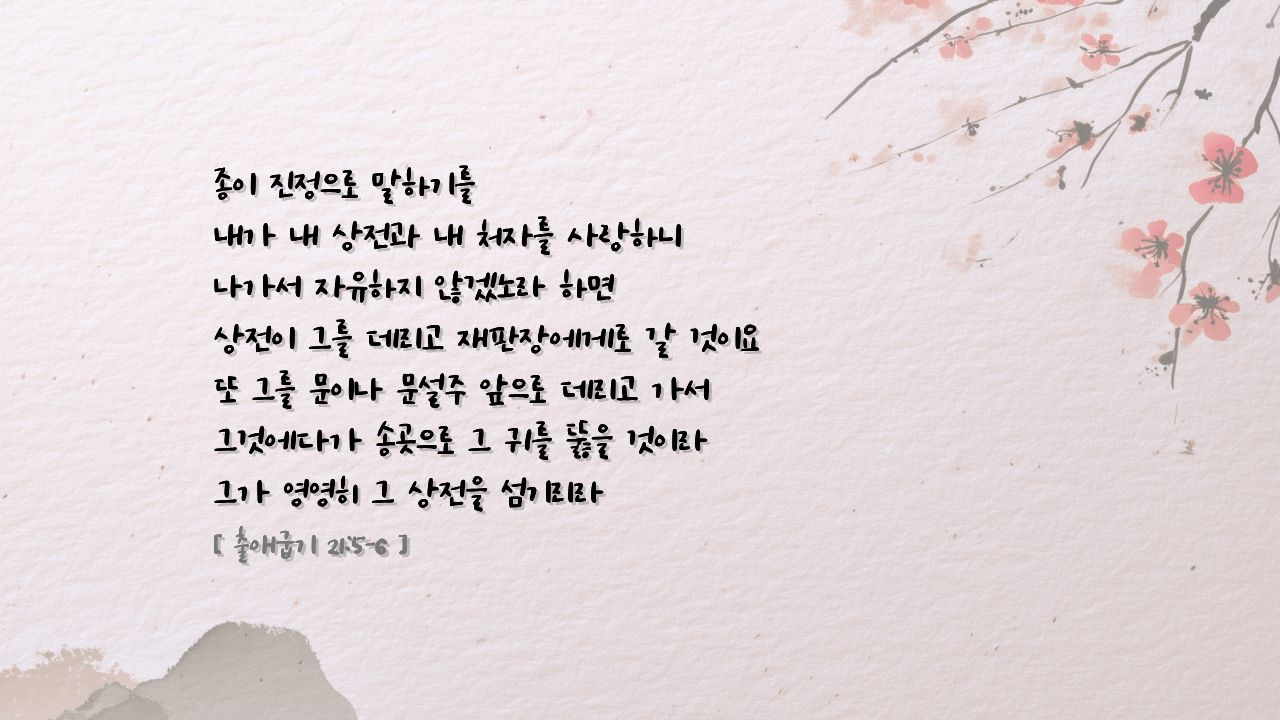 종이 진정으로 말하기를
내가 내 상전과 내 처자를 사랑하니
나가서 자유하지 않겠노라 하면
상전이 그를 데리고 재판장에게로 갈 것이요
또 그를 문이나 문설주 앞으로 데리고 가서
그것에다가 송곳으로 그 귀를 뚫을 것이라
그가 영영히 그 상전을 섬기리라
[ 출애굽기 21:5-6 ]